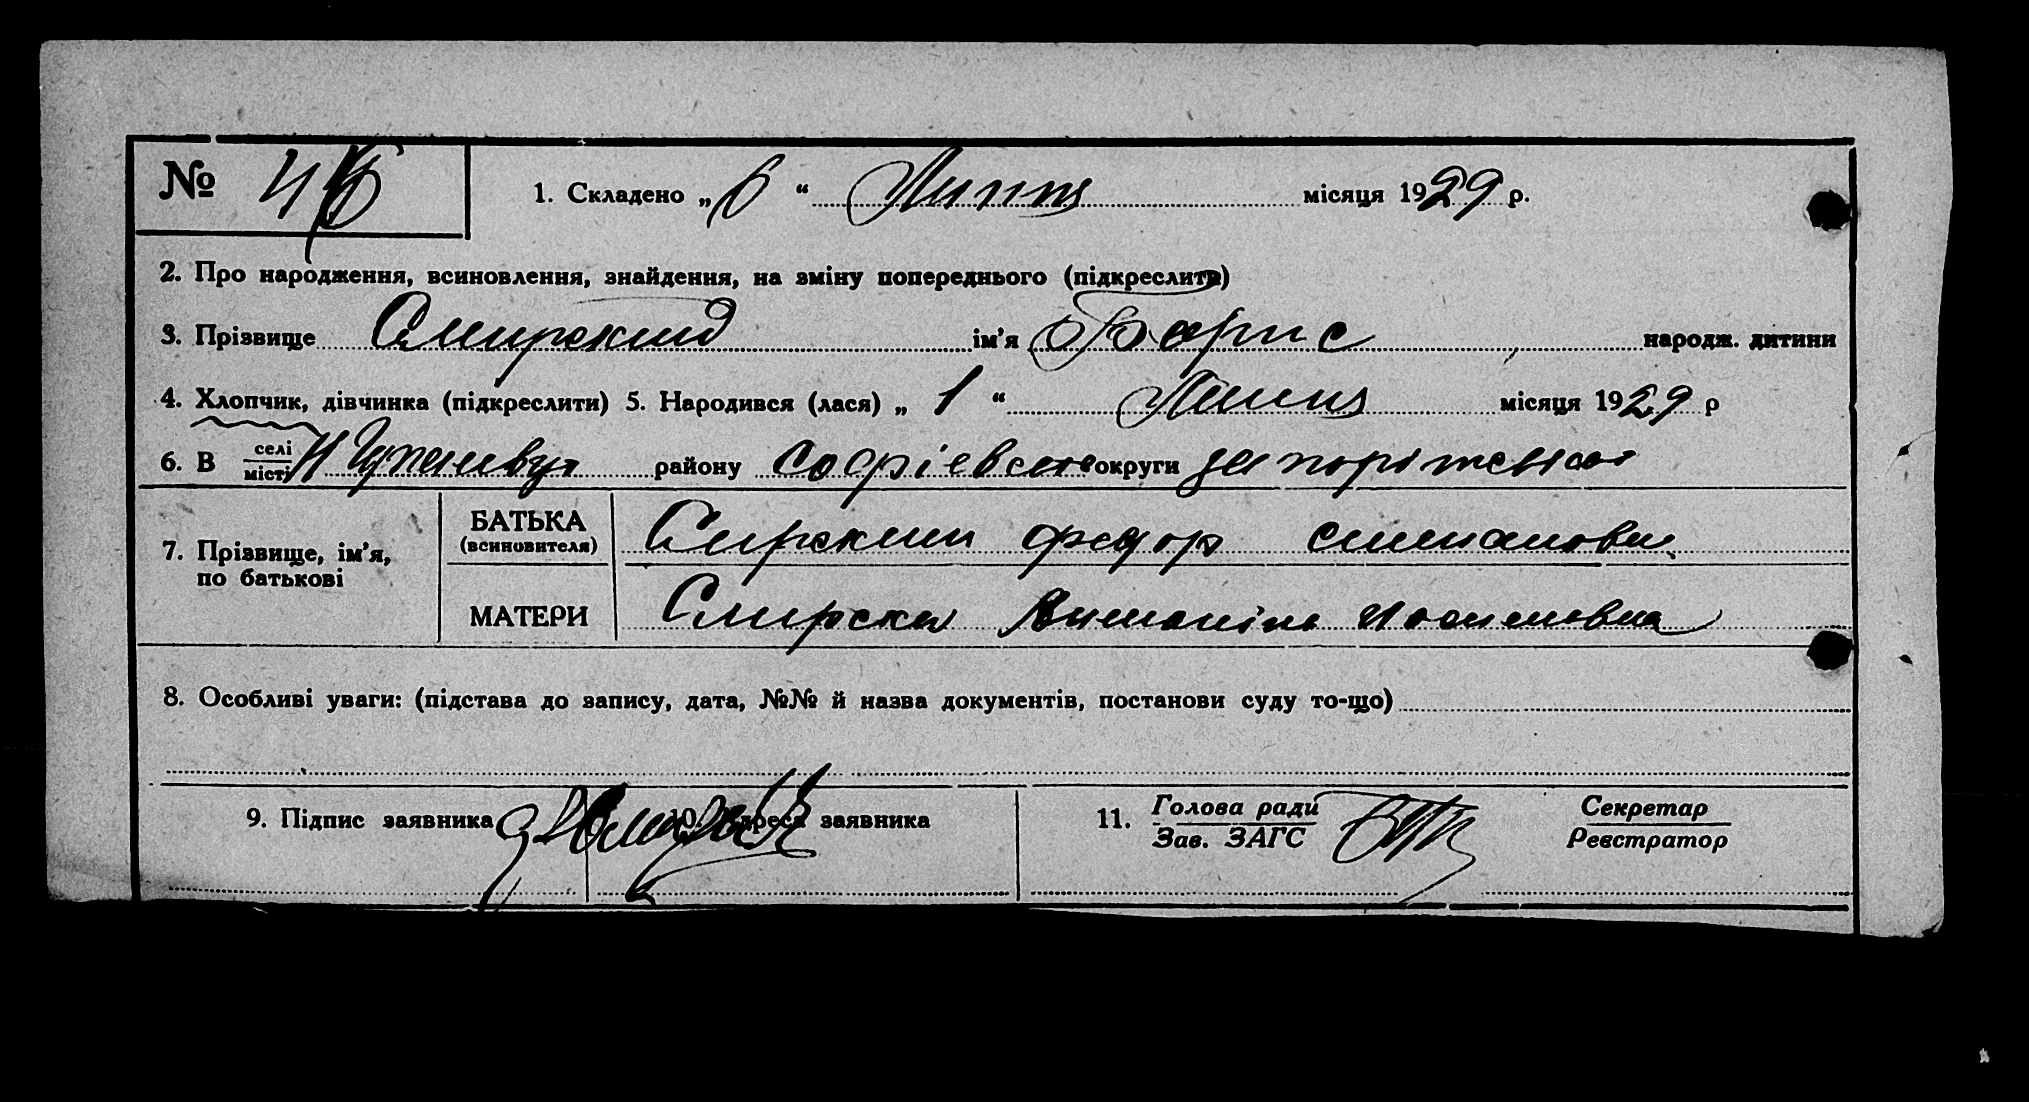 № 46
1. Складено „ 6 “ Липня місяця 1929 р.
2. Про народження, всиновлення, знайдення, на зміну попереднього (підкреслити)
3. Прізвище Смирский ім’я Борис народж. дитини
4. Хлопчик, дівчинка (підкреслити) 5. Народився (лася) „ 1 “ Липня місяця 1929 р
6. В селі місті району Софіевского округи запоріжской
7. Прізвище, ім’я, по батькові
БАТЬКА (всиновителя) Смирский Федор
МАТЕРИ Смирска
8. Особливі уваги: (підстава до запису, дата, №№ й назва документів, постанови суду то-що)
9. Підпис заявника 10. Адреса заявника 11. Голова ради Секретар
Зав. ЗАГС Реєстратор